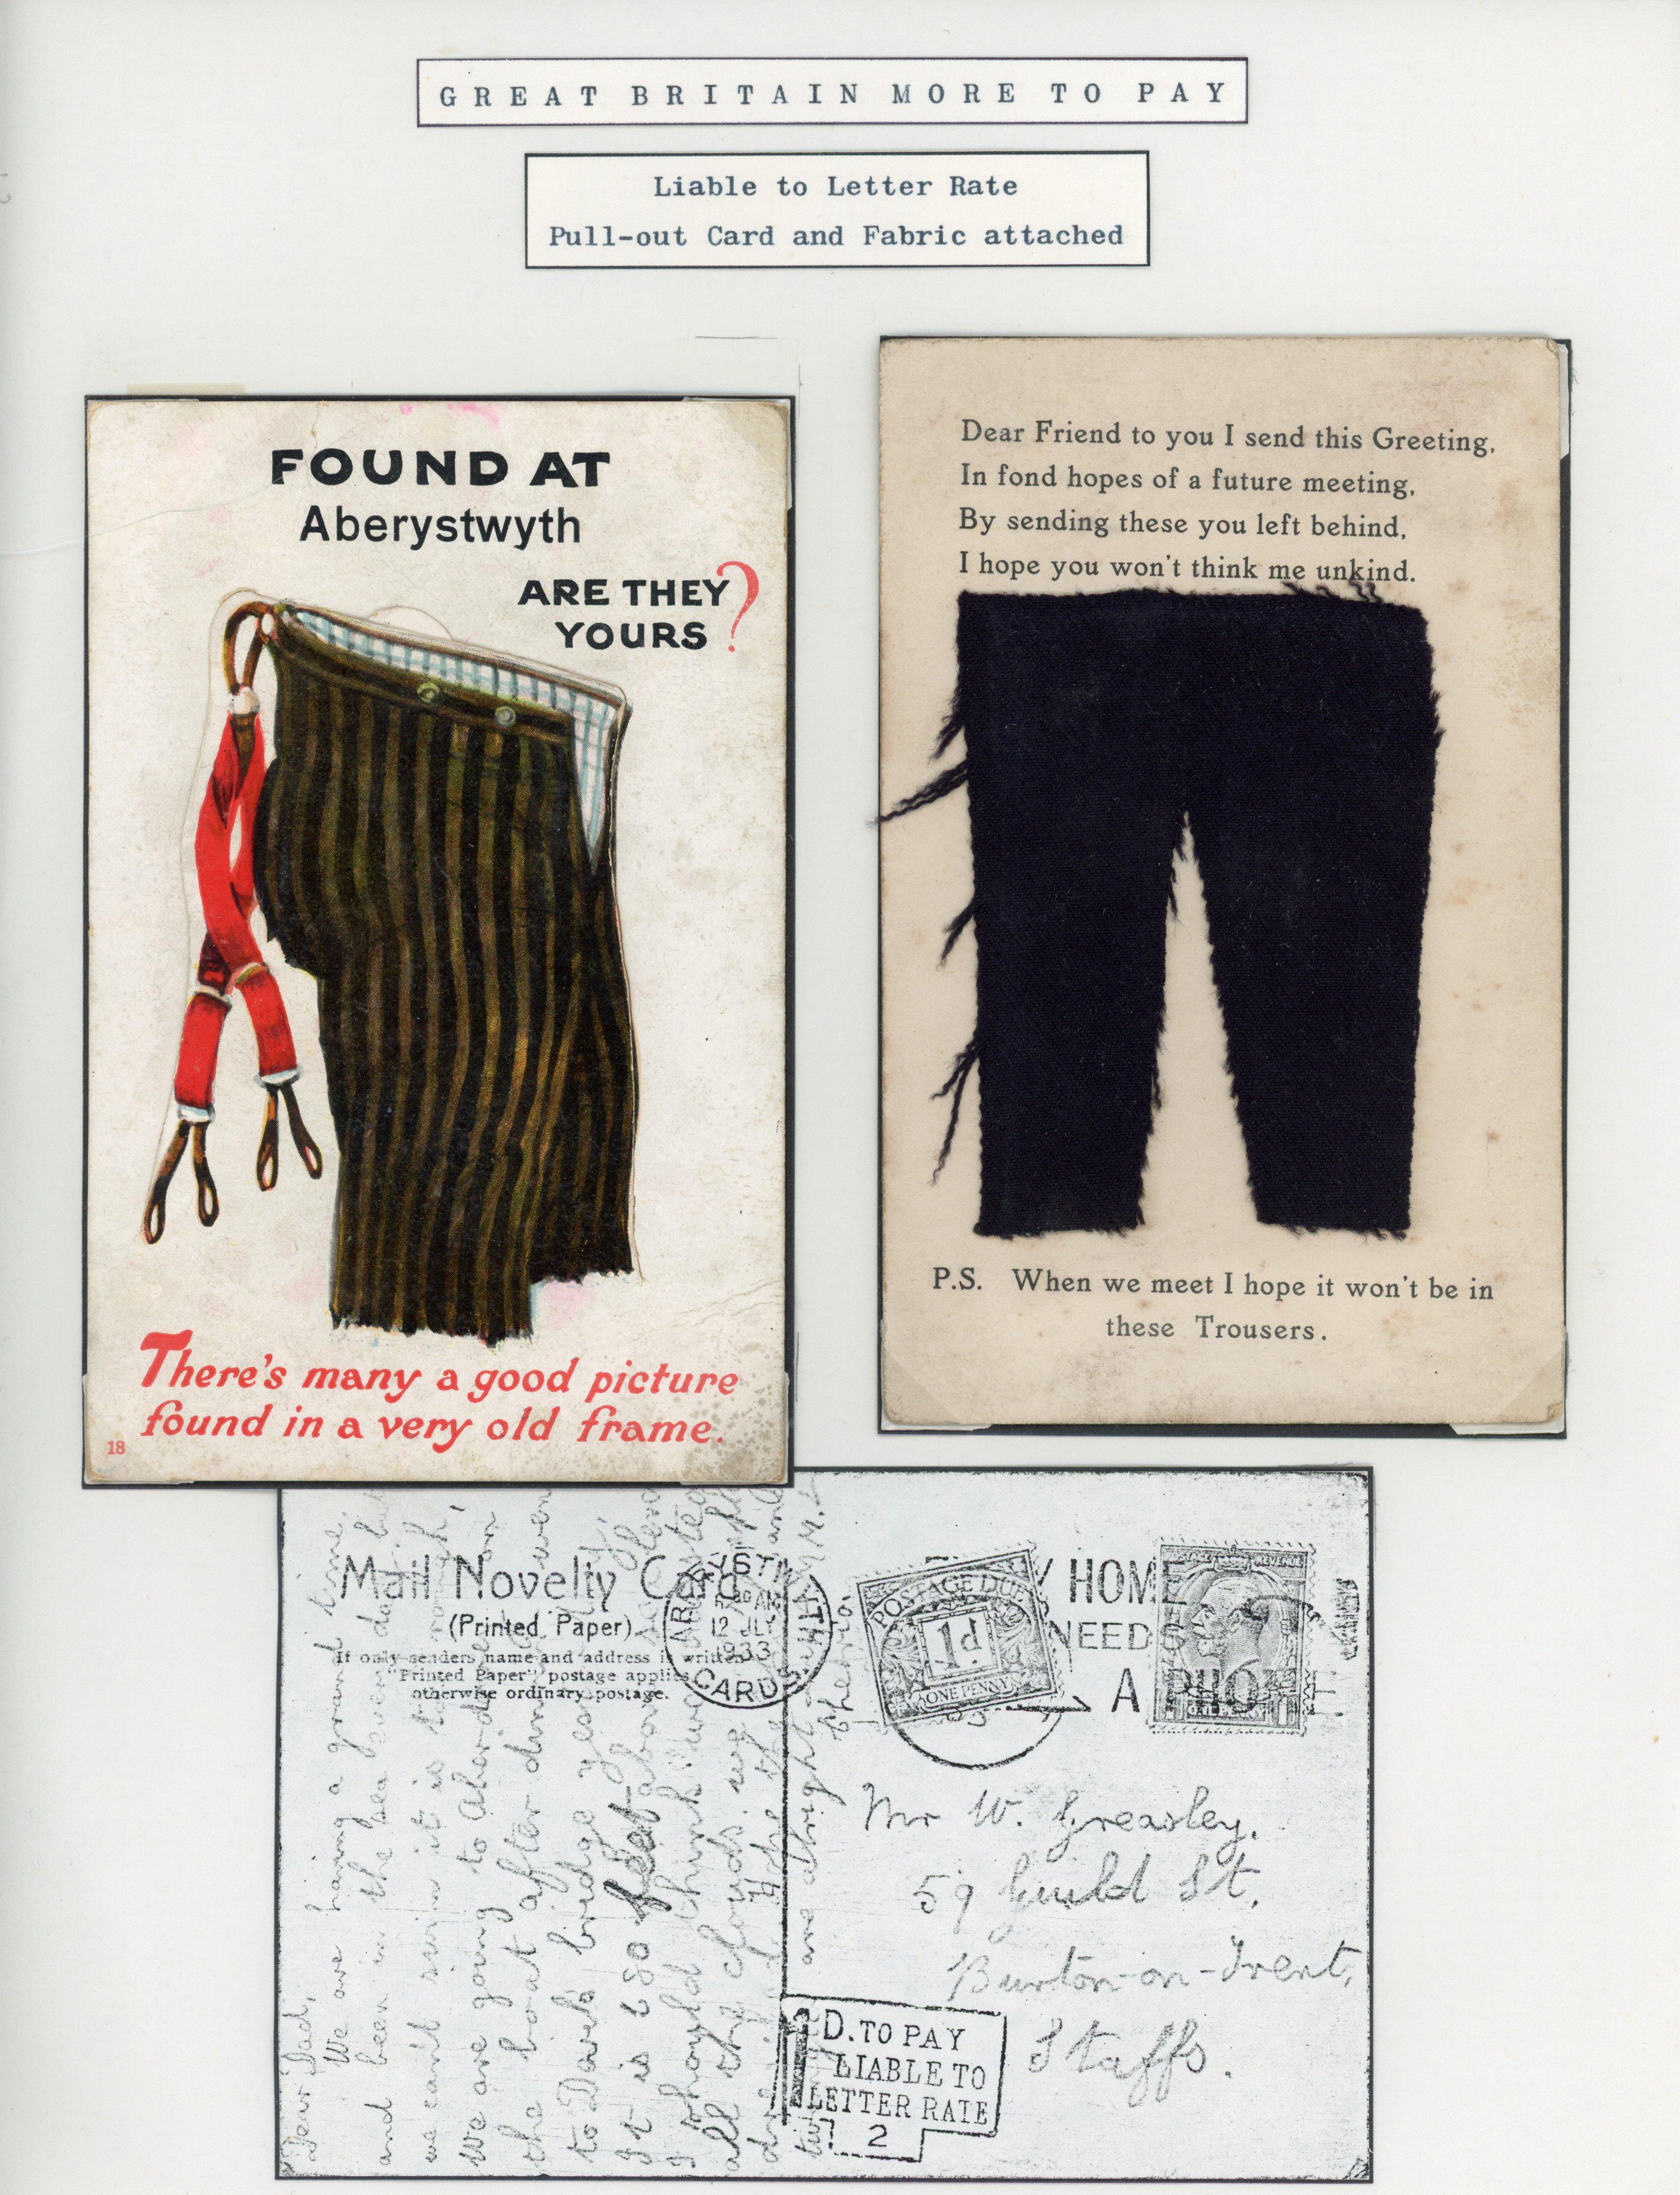 GREAT BRITAIN MORE TO PAY
Liable to Letter Rate
Pull-out Card and Fabric attached
FOUND AT
Aberystwyth
ARE THEY
YOURS?
There's many a good picture
found in a very old frame.
18
Dear Friend to you I send this Greeting,
In fond hopes of a future meeting,
By sending these you left behind,
I hope you won't think me unkind.
P.S. When we meet I hope it won't be in
these Trousers.
Mail Novelty Card
(Printed Paper)
If only senders name and address is written
"Printed Paper" postage applies
otherwise ordinary postage.
ABERYSTWYTH
12 JLY
1933
CARDS
POSTAGE DUE
1d
ONE PENNY
HOME
NEEDS
A PHONE
Dear Dad,
We are having a grand time,
and been in the sea
we can't swim it is to
We are going to Aber
the boat after dinner
to Devils bridge
It is 680 feet above
I should think we
all the clouds. we
are alright
Cheerio.
Mr W. Greasley.
59 Guild St,
Burton-on-Trent,
Staffs.
1D. TO PAY
LIABLE TO
LETTER RATE
2